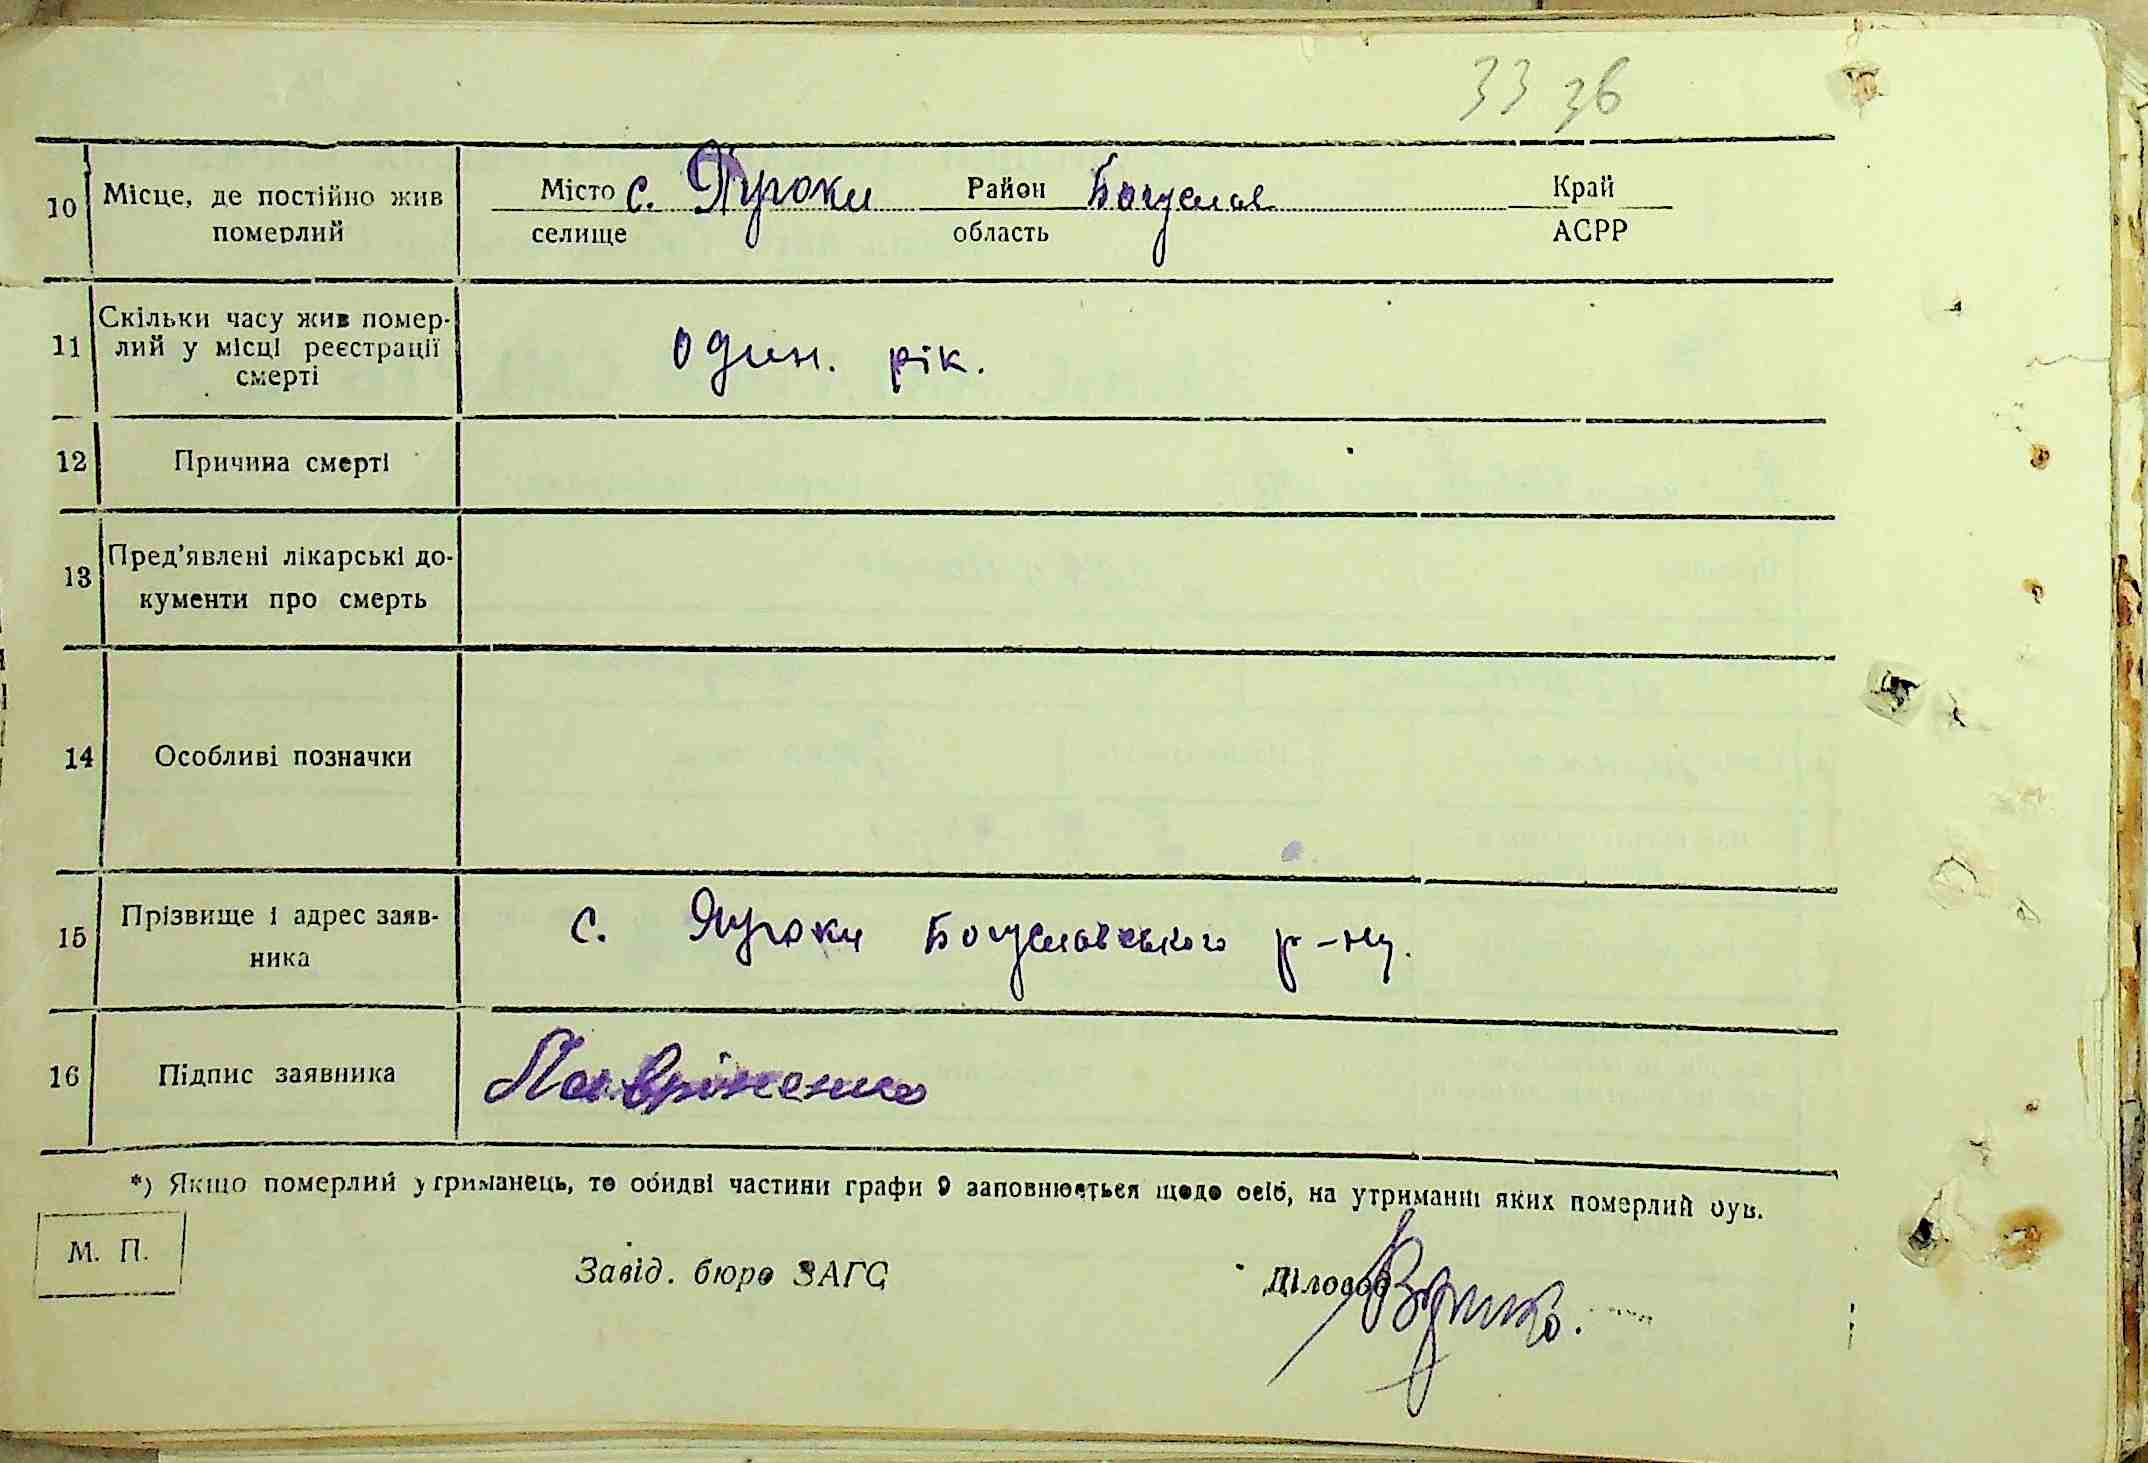 33 зв
10 Місце, де постійно жив померлий
Місто с. Туроки Район Богуслав Край
селище область АСРР
11 Скільки часу жив помер-
лий у місці реєстрації
смерті
один. рік.
12 Причина смерті
13 Пред'явлені лікарські до-
кументи про смерть
14 Особливі позначки
15 Прізвище і адрес заяв-
ника
с. Яуроки Богуславського р-ну.
16 Підпис заявника
Лавріненко
*) Якщо померлий утриманець, то обидві частини графи 9 заповнюється щодо осіб, на утриманні яких померлий був.
М. П.
Завід. бюро ЗАГС Діловод